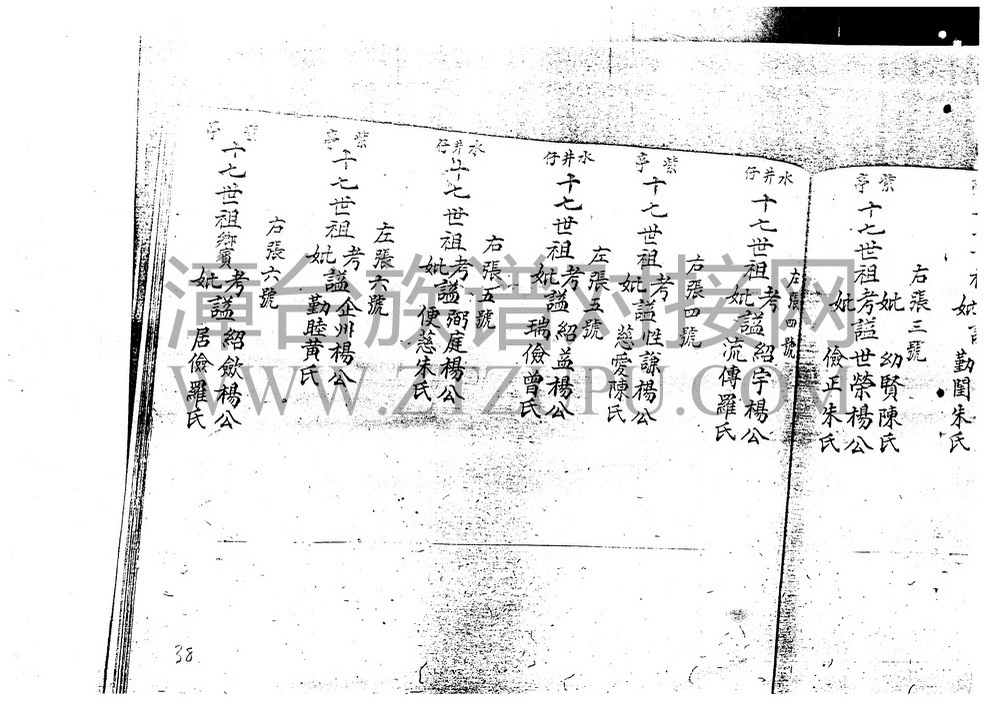 妣 勤閨朱氏
右張三號
紫亭
十七世祖考謚世榮楊公
妣 幼賢陳氏
妣 儉正朱氏
左張四號
水井仔
十七世祖考謚紹宇楊公
妣 流傳羅氏
右張四號
紫亭
十七世祖考謚性謙楊公
妣 慈愛陳氏
左張五號
水井仔
十七世祖考謚紹益楊公
妣 瑞儉曾氏
右張五號
水井仔
十七世祖考謚弼庭楊公
妣 便慈朱氏
左張六號
紫亭
十七世祖考謚企州楊公
妣 勤睦黃氏
右張六號
紫亭
十七世祖鄉賓考謚紹歛楊公
妣 居儉羅氏
38
漳台族谱对接网
WWW.ZTZUPU.COM